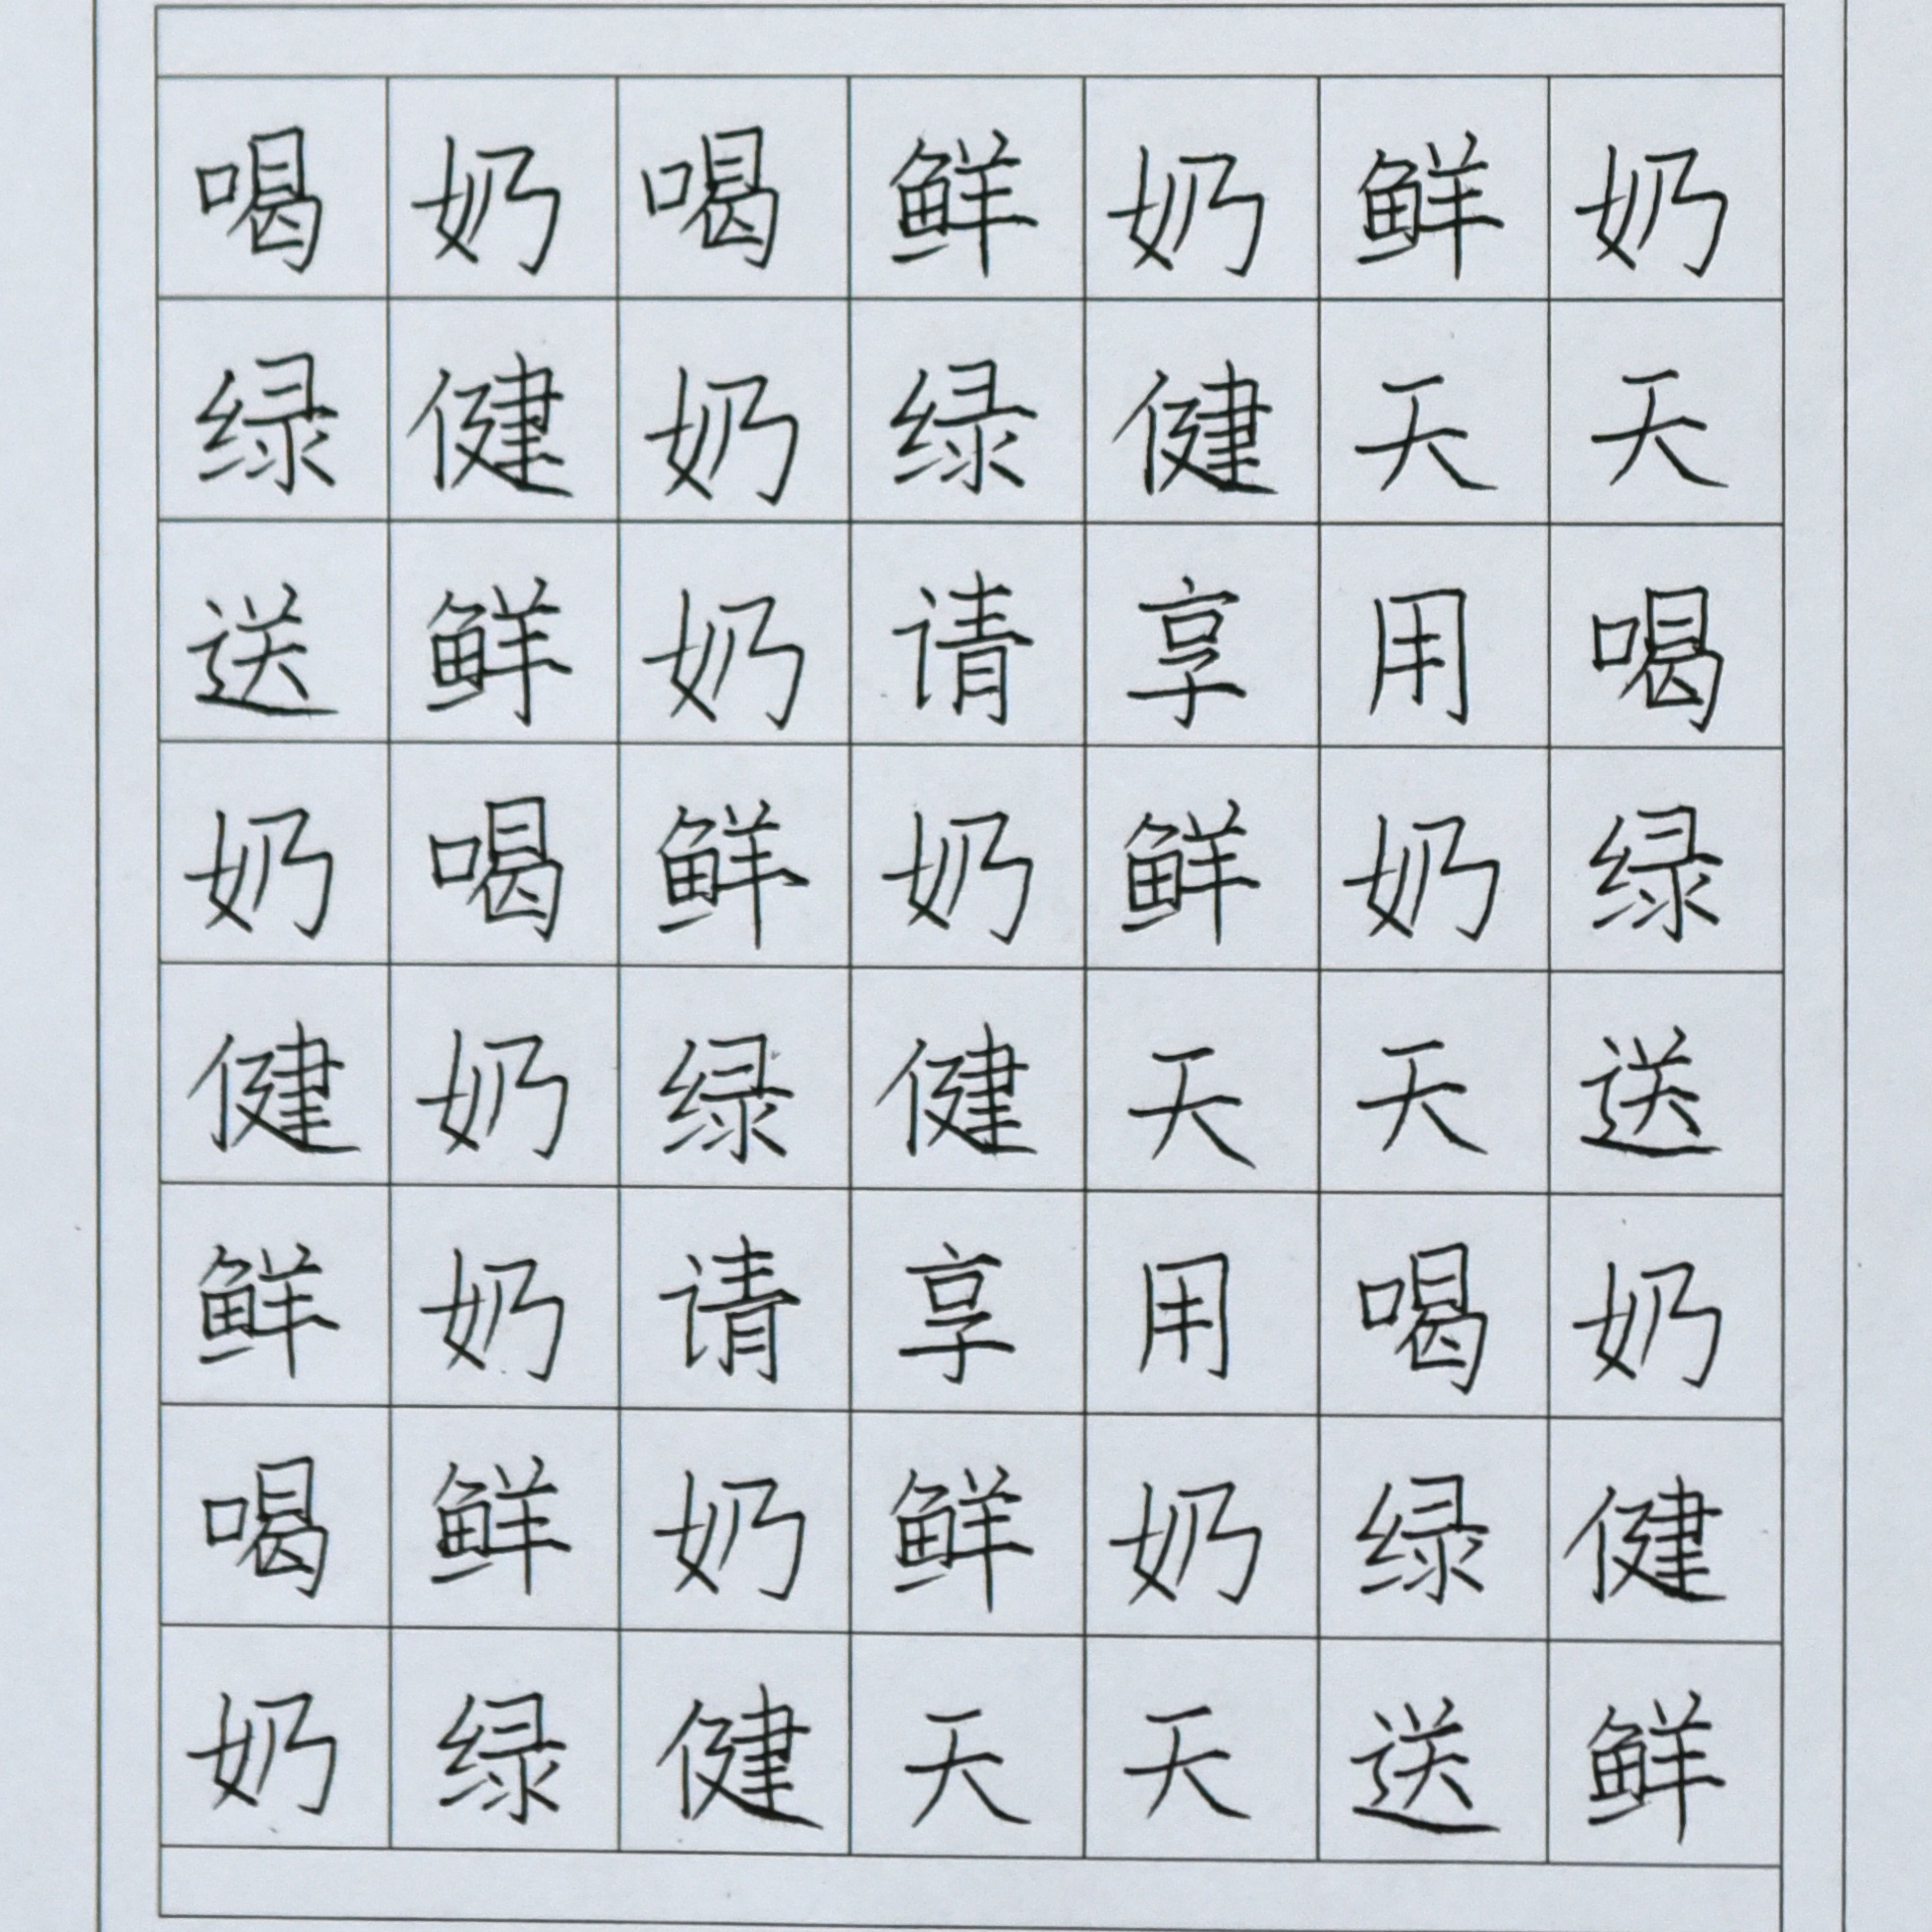 喝奶喝鲜奶鲜奶
绿健奶绿健天天
送鲜奶请享用喝
奶喝鲜奶鲜奶绿
健奶绿健天天送
鲜奶请享用喝奶
喝鲜奶鲜奶绿健
奶绿健天天送鲜